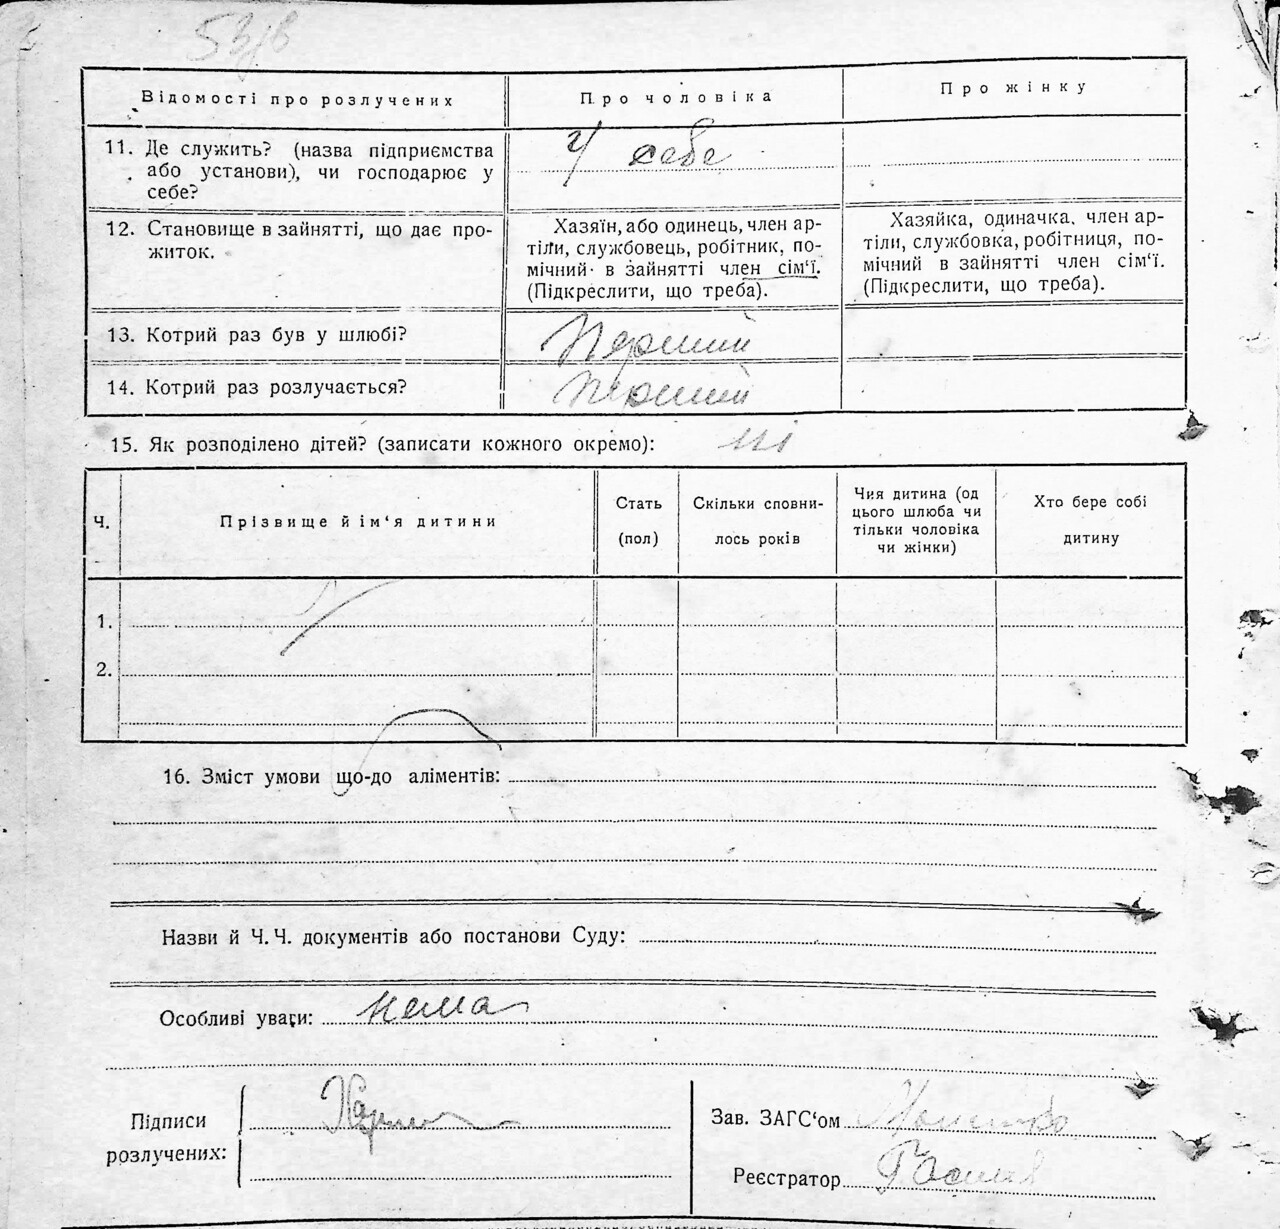 53/в
Відомості про розлучених
Про чоловіка
Про жінку
11. Де служить? (назва підприємства
або установи), чи господарює у
себе?
У себе
12. Становище в зайнятті, що дає про-
житок.
Хазяїн, або одинець, член ар-
тіли, службовець, робітник, по-
мічний в зайнятті член сім‘ї.
(Підкреслити, що треба).
Хазяйка, одиначка, член ар-
тіли, службовка, робітниця, по-
мічний в зайнятті член сім‘ї.
(Підкреслити, що треба).
13. Котрий раз був у шлюбі?
Перший
14. Котрий раз розлучається?
Перший
15. Як розподілено дітей? (записати кожного окремо):
Ч.
Прізвище й ім‘я дитини
Стать
(пол)
Скільки сповни-
лось років
Чия дитина (од
цього шлюба чи
тільки чоловіка
чи жінки)
Хто бере собі
дитину
1.
2.
16. Зміст умови що-до аліментів:
Назви й Ч. Ч. документів або постанови Суду:
Особливі уваги: нема
Підписи
розлучених:
Зав. ЗАГС‘ом
Реєстратор